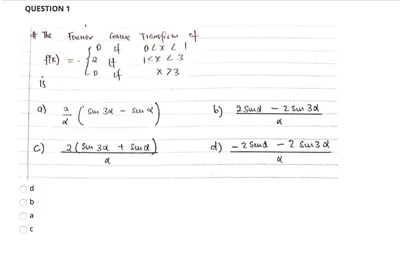 QUESTION 1
# The Fourier Cosine Transform of
f(x) = { 0 if 0 < x < 1
2 if 1 < x < 3
0 if x > 3
is
a) 2/α ( sin 3α - sin α )
b) 2 sin α - 2 sin 3α / α
c) 2 ( sin 3α + sin α ) / α
d) - 2 sin α - 2 sin 3α / α
d
b
a
c